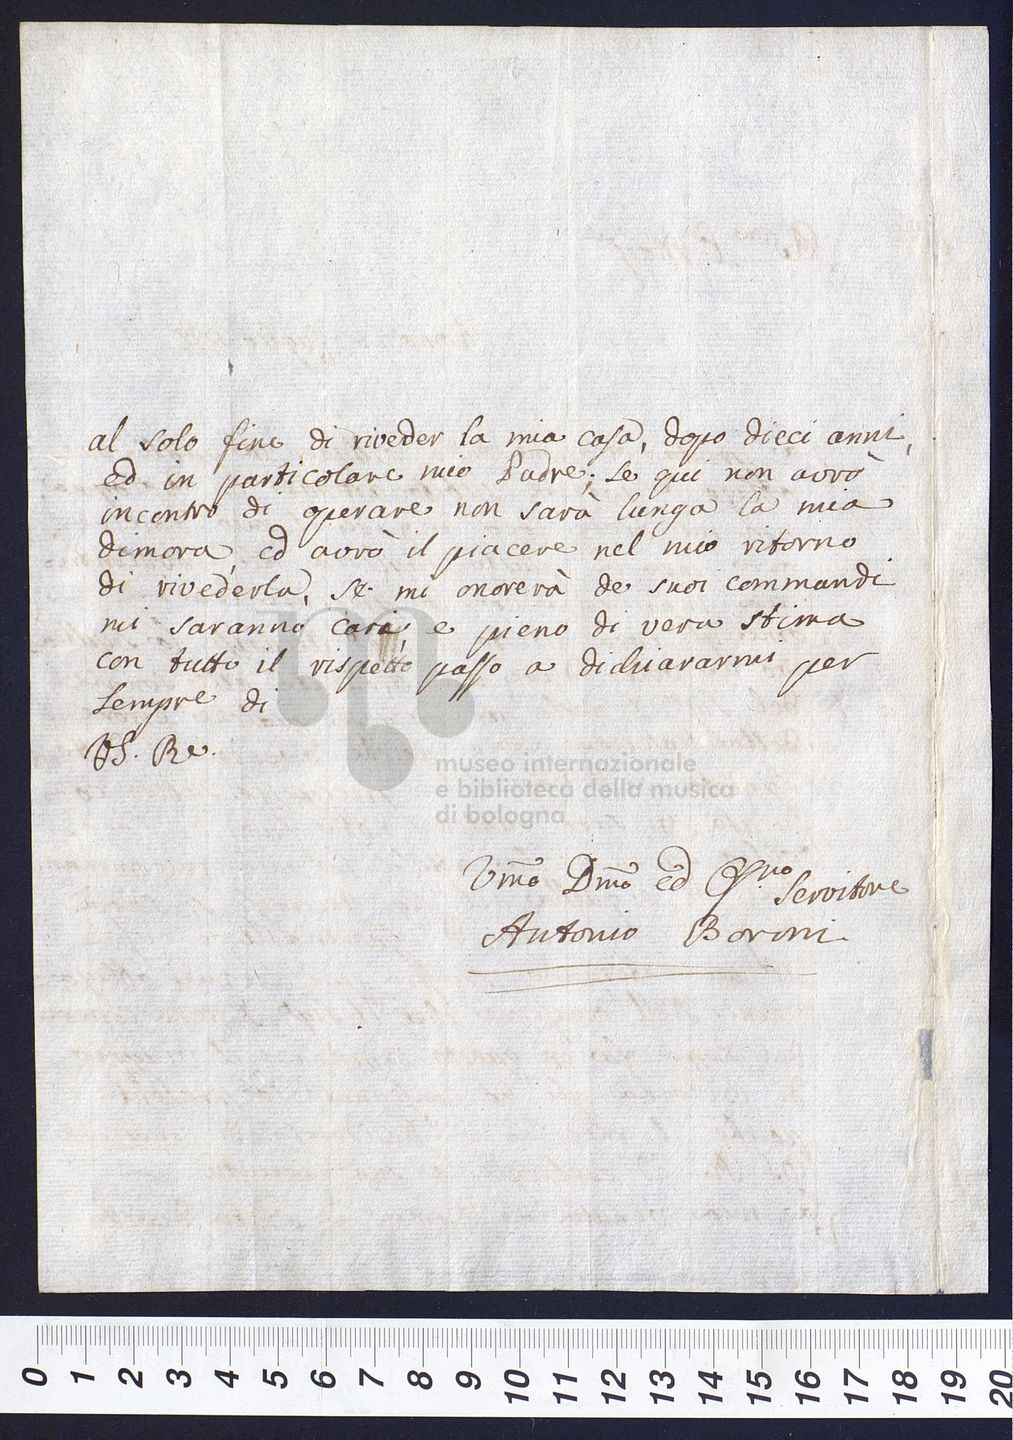 al solo fine di riveder la mia casa, dopo dieci anni,
ed in particolare mio Padre; se qui non avrò
incontro di operare non sarà lunga la mia
dimora, ed avrò il piacere nel mio ritorno
di rivederla, se mi onorerà de suoi commandi
mi saranno cari, e pieno di vera stima
con tutto il rispetto passo a dichiararmi per
sempre di
VS. Re.
museo internazionale
e biblioteca della musica
di bologna
Vmo Dmo ed
Servitore
Antonio Boroni
0 1 2 3 4 5 6 7 8 9 10 11 12 13 14 15 16 17 18 19 20